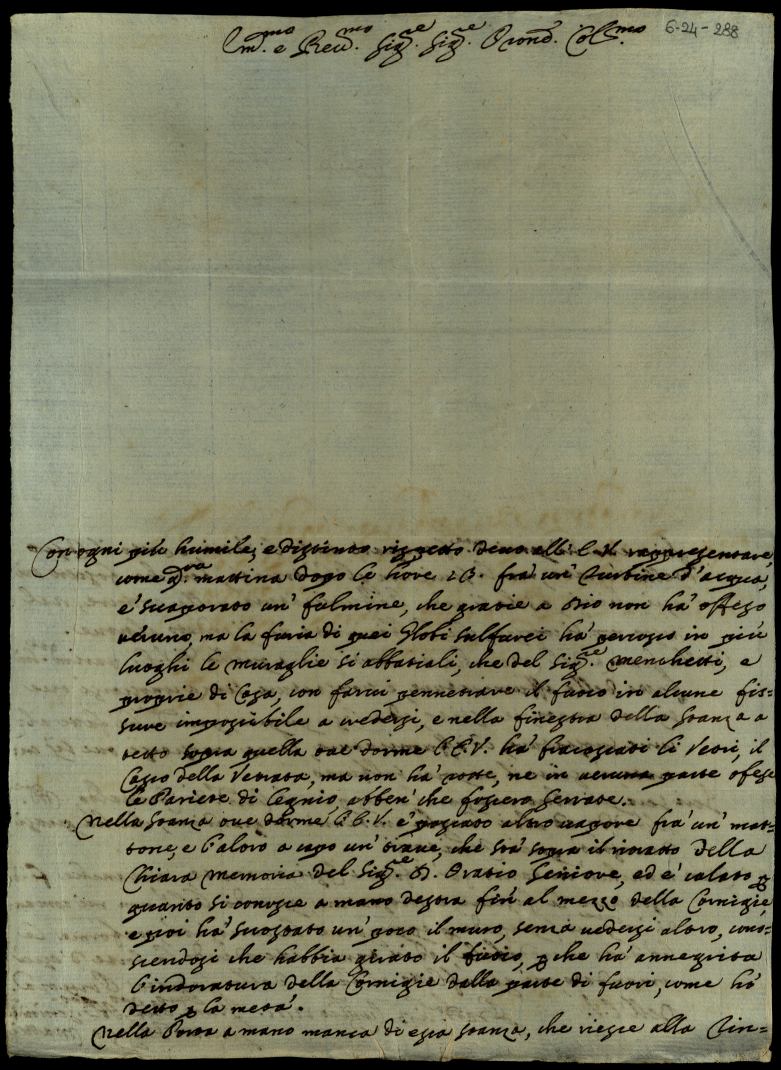 6-24-288
Ill.mo e Reu.mo Sig.re Sig.re Pron. Col.mo
Con ogni più humile, e distinto rispetto deuo all'E.V. rappresentare,
come q.ta mattina dopo le hore 18. frà un' turbine d'acqua,
è suaporato un' fulmine, che gratie a Dio non hà offeso
ueruno, ma la furia di quei Globi sulfurei hà percosso in più
luoghi le muraglie si abbatiali, che del Sig.re Menchetti, e
proprie di Casa, con farui pennetrare il fuoco in alcune fis=
sure impossibile a credersi, e nella finestra della stanza a
tetto sopra quella oue dorme l'E.V. hà fracassati li Vetri, il
Telaro della Vetrata, ma non hà rotte, ne in ueruna parte ofese
le Pariete di Legnio, abben' che fossero serrate.
Nella stanza oue dorme l'E.V. è passato altro uapore frà un' mat=
tone, e l'altro a capo un' traue, che stà sopra il ritratto della
Chiara memoria del Sig.re D. Oratio Seniore, ed è calato p
quanto si conosce a mano destra fin' al mezzo della Cornigie,
e poi hà scrostato un' poco il muro, senza uedersi altro, cono=
scendosi che habbia girato il fuoco, p che hà annegrita
l'indoratura della Cornigie dalla parte di fuori, come hò
detto p la metà.
Nella Porta a mano manca di essa stanza, che riesce alla Cin=